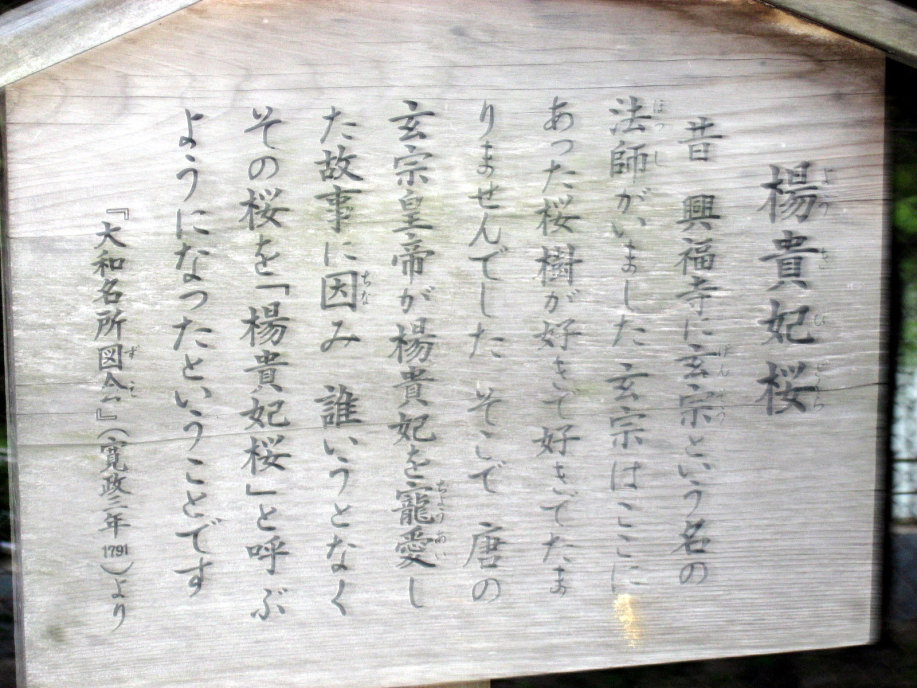 楊貴妃桜
昔 興福寺に玄宗という名の
法師がいました 玄宗はここに
あった桜樹が好きで好きでたま
りませんでした そこで 唐の
玄宗皇帝が楊貴妃を寵愛し
た故事に因み 誰いうとなく
その桜を「楊貴妃桜」と呼ぶ
ようになったということです
『大和名所図会』(寛政三年1791)より